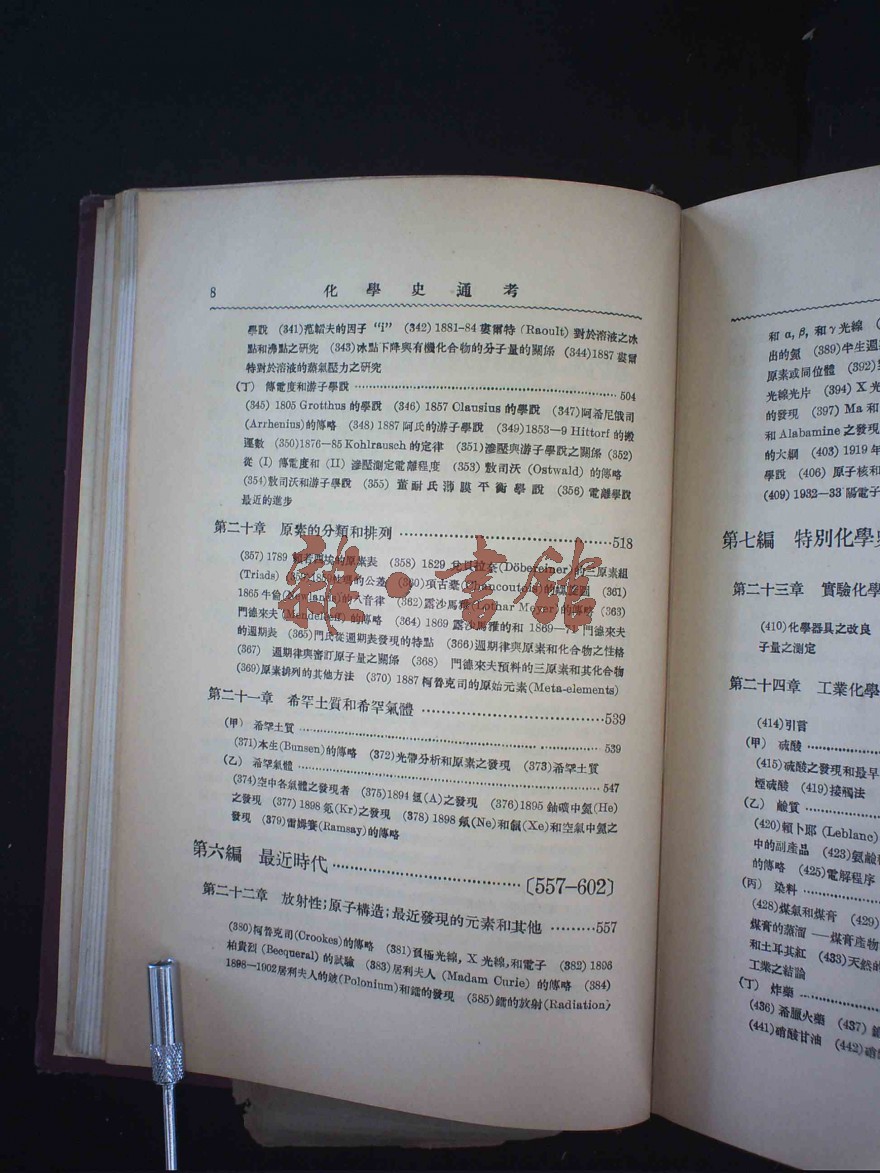 8 化學史通考
學說 (341)范韜夫的因子 “i” (342) 1881-84 婁爾特 (Raoult) 對於溶液之冰
點和沸點之研究 (343)冰點下降與有機化合物的分子量的關係 (344)1887 婁爾
特對於溶液的蒸氣壓力之研究
(丁) 傳電度和游子學說 504
(345) 1805 Grotthus 的學說 (346) 1857 Clausius 的學說 (347)阿希尼俄司
(Arrhenius)的傳略 (348) 1887 阿氏的游子學說 (349)1853—9 Hittorf 的搬
運數 (350)1876—85 Kohlrausch 的定律 (351)滲壓與游子學說之關係 (352)
從 (I) 傳電度和 (II) 滲壓測定電離程度 (353) 敖司沃 (Ostwald) 的傳略
(354)敖司沃和游子學說 (355) 董耐氏沛膜平衡學說 (356) 電離學說
最近的進步
第二十章 原素的分類和排列 518
(357) 1789 的原素表 (358) 1829 (Döbereiner)的三原素組
(Triads) 的公差 項古臺 (Chancoutois)的 (361)
1865 牛倫(Newlands)的八音律 (362) 露沙馬雅(Lothar Meyer)的傳略 (363)
門德來夫(Mendeléeff)的傳略 (364) 1869 露沙馬雅的和 1869—71 門德來夫
的週期表 (365)門氏從週期表發現的特點 (366)週期律與原素和化合物之性格
(367) 週期律與審訂原子量之關係 (368) 門德來夫預料的三原素和其化合物
(369)原素排列的其他方法 (370) 1887 柯魯克司的原始元素(Meta-elements)
第二十一章 希罕土質和希罕氣體 539
(甲) 希罕土質 539
(371)本生(Bunsen)的傳略 (372)光帶分析和原素之發現 (373)希罕土質
(乙) 希罕氣體 547
(374)空中各氣體之發現者 (375)1894 氬(A)之發現 (376)1895 鈾礦中氦(He)
之發現 (377) 1898 氪(Kr)之發現 (378) 1898 氖(Ne)和氙(Xe)和空氣中氦之
發現 (379)雷姆賽(Ramsay)的傳略
第六編 最近時代 〔557—602〕
第二十二章 放射性;原子構造;最近發現的元素和其他 557
(380)柯魯克司(Crookes)的傳略 (381)負極光線, X 光線,和電子 (382) 1896
柏貴烈 (Becqueral) 的試驗 (383)居利夫人 (Madam Curie) 的傳略 (384)
1898—1902居利夫人的鈹(Polonium)和鐳的發現 (385)鐳的放射(Radiation)
和 α, β, 和 γ 光線
出的氦 (389)半生週
原素或同位體 (392)
光線光片 (394) X 光
的發現 (397) Ma 和
和 Alabamine 之發現
的大綱 (403) 1919 年
學說 (406) 原子核和
(409) 1932—33 隔電子
第七編 特別化學史
第二十三章 實驗化學
(410)化學器具之改良
子量之測定
第二十四章 工業化學
(414)引言
(甲) 硫酸
(415)硫酸之發現和最早
煙硫酸 (419)接觸法
(乙) 鹼質
(420)賴卜郎 (Leblanc)
中的副產品 (423)氨鹼
的傳略 (425)電解程序
(丙) 染料
(428)煤氣和煤膏 (429)
煤膏的蒸溜 —煤膏產物
和土耳其紅 (433)天然的
工業之結論
(丁) 炸藥
(436) 希臘火藥 (437)
(441)硝酸甘油 (442)硝
雜·書館